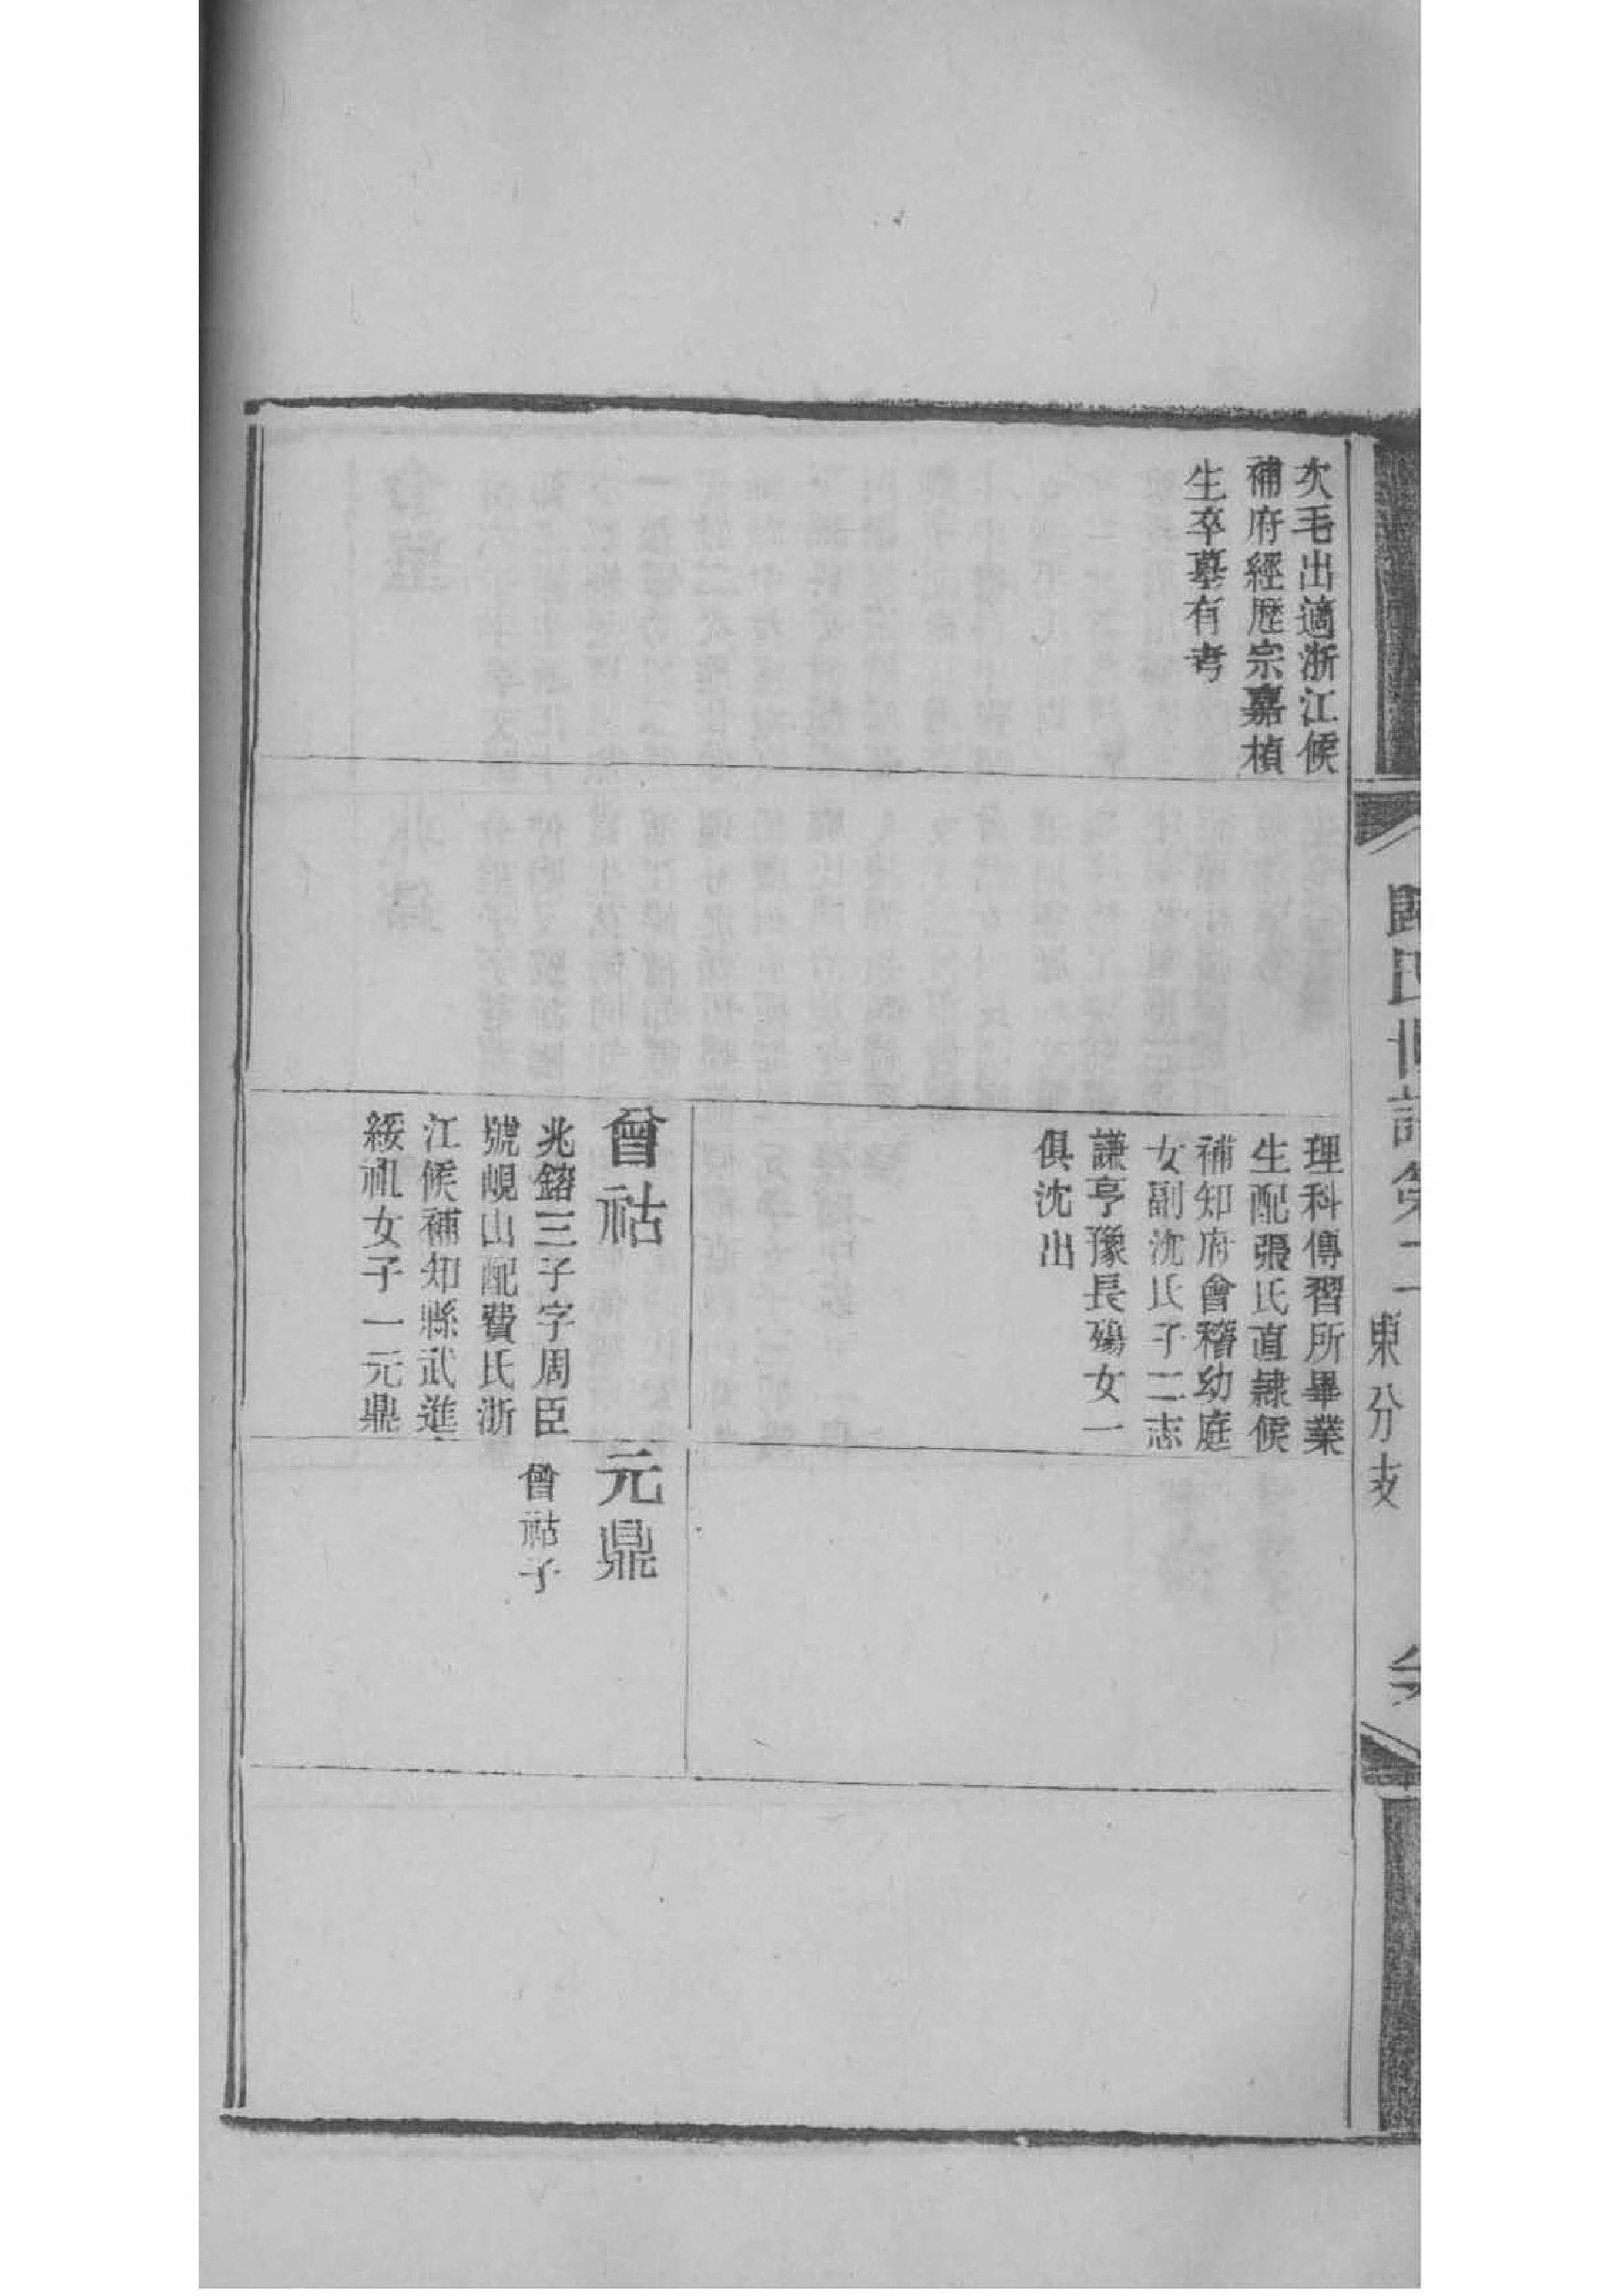 歸氏世譜第二
東分支
次毛出適浙江候
補府經歷宗嘉楨
生卒墓有考
理科傳習所畢業
生配張氏直隸候
補知府會稽幼庭
女副沈氏子二志
謙亨豫長殤女一
俱沈出
曾祜
兆鎔三子字周臣
號峴山配費氏浙
江候補知縣武進
綏祖女子一元鼎
元鼎
曾祜子